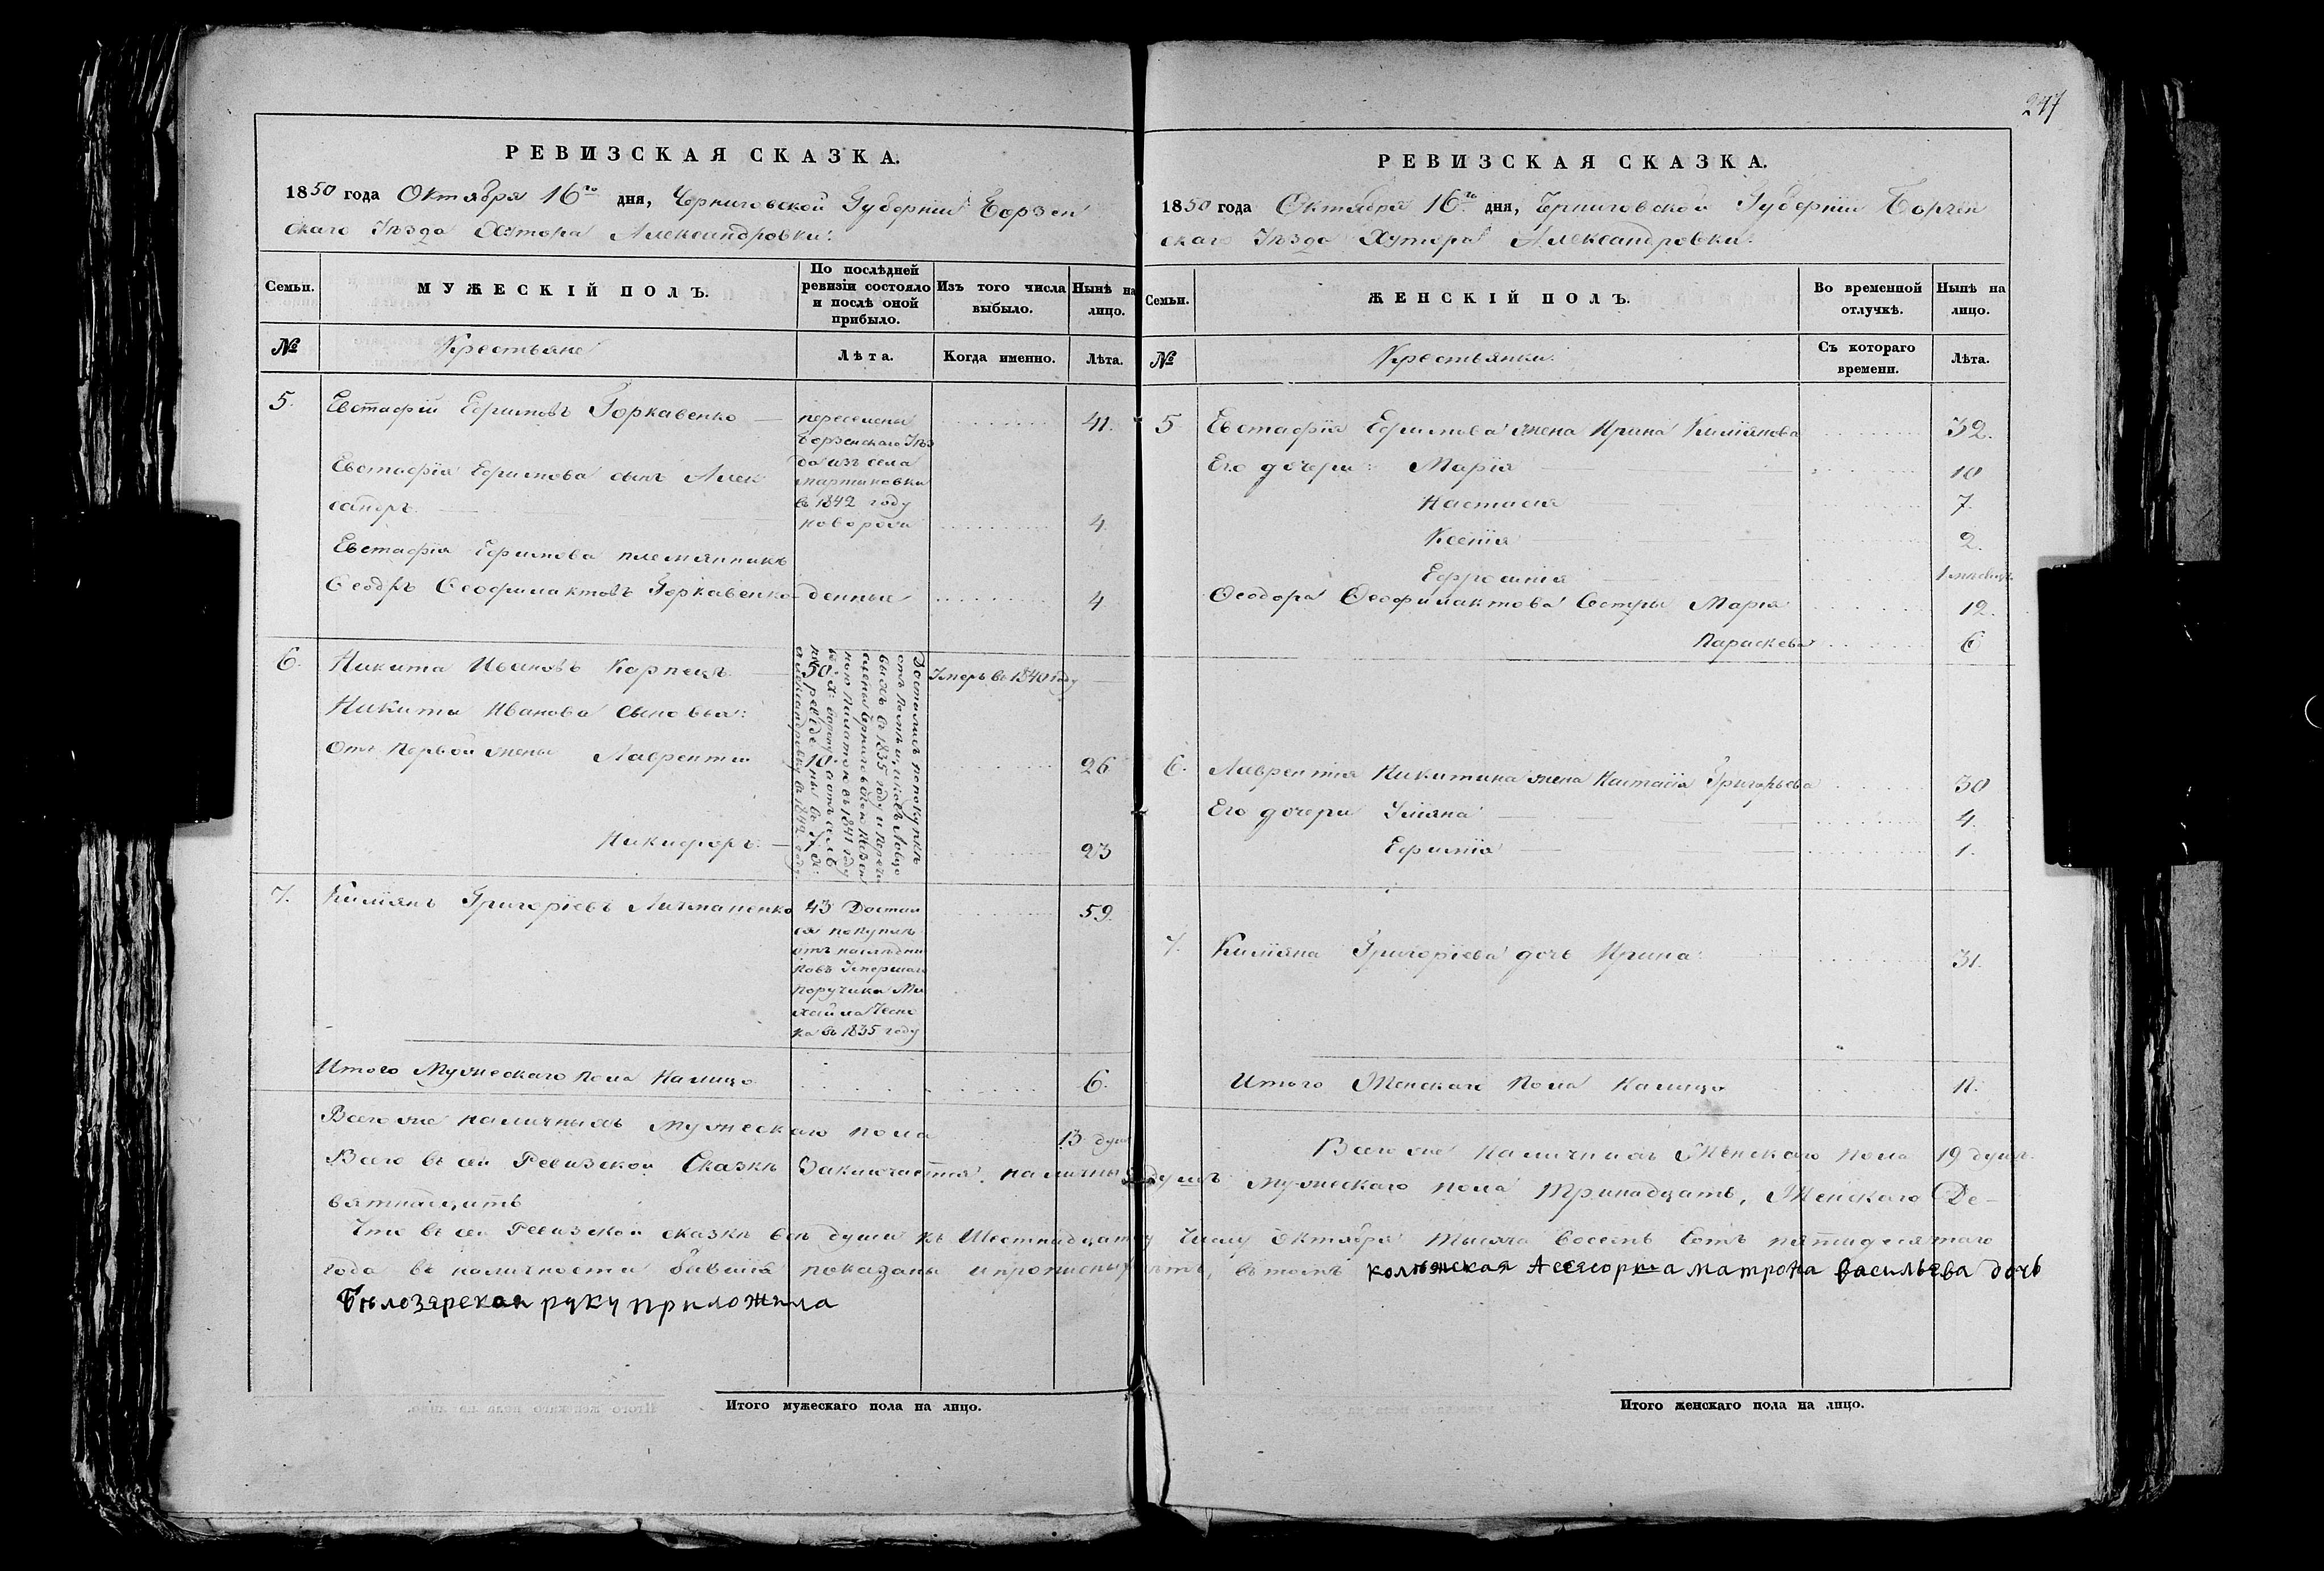 247
РЕВИЗСКАЯ СКАЗКА.
1850 года Октября 16го дня, Черниговской Губерніи Борзен
скаго Уѣзда Хутора Александровки.
Семьи.
МУЖЕСКІЙ ПОЛЪ.
По послѣдней
ревизіи состояло
и послѣ оной
прибыло.
Изъ того числа
выбыло.
Нынѣ на
лицо.
№
Крестьяне
Лѣта.
Когда именно.
Лѣта.
5. Евстафій Ефимовъ Горкавенко 41.
переселены
Борзенскаго Уѣз
да изъ села
Мартиновки
въ 1842 году
Евстафія Ефимова сынъ Алек
сандръ новорож 4
Евстафія Ефимова племянникъ
Ѳеодръ Ѳеофилактовъ Горкавенко денные 4
6. Никита Ивановъ Карпецъ 50 Умеръ въ 1840 году
Никиты Иванова сыновья:
Отъ первой жены Лаврентій 10 26
Никифоръ 7 23
Достались по покупкѣ
отъ Помѣщиковъ
въ 1835 году и
Черниговскою Казен
ною Палатою въ 1841 году
Александровку въ 1842 году
7. Киліянъ Григоріевъ Личманенко 43 Достал 59.
ся покупкѣ
отъ наслѣдни
ковъ Умершаго
Поручика Ми
хайла
ка въ 1835 году
Итого Мужескаго Пола Налицо 6.
Всего же наличныхъ Мужескаго пола 13 душ
РЕВИЗСКАЯ СКАЗКА.
1850 года Октября 16го дня, Черниговской Губерніи Борзен
скаго Уѣзда Хутора Александровки.
Семьи.
ЖЕНСКІЙ ПОЛЪ.
Во временной
отлучкѣ.
Нынѣ на
лицо.
№
Крестьянки.
Съ котораго
времени.
Лѣта.
5 Евстафія Ефимова жена Ирина Киліянова 32.
Его дочери: Марія 10
Настасія 7.
Ксенія 2.
Ефросинія 1 мѣсяц.
Ѳеодора Ѳеофилактова Сестры Марія 12.
Параскева 6
6. Лаврентія Никитина жена Настасія Григорьева 30
Его дочери Уліяна 4.
Ефимія 1.
7. Киліяна Григоріева дочь Ирина 31.
Итого Женскаго Пола Налицо 11.
Всего же Наличныхъ Женскаго пола 19 душъ.
Всего въ сей Ревизской Сказкѣ Заключается наличныхъ душъ мужескаго пола Тринадцать, Женскаго Де-
вятнадцать
Что въ сей Ревизской сказкѣ всѣ души къ Шестнадцатому Числу Октября тысяча восемь Сотъ пятидесятаго
года въ наличности бывшія показаны и прописныхъ нѣтъ, въ томъ колѣжская Асесорша матрона васильева дочь
Бѣлозярская руку приложила
Итого мужескаго пола на лицо.
Итого женскаго пола на лицо.